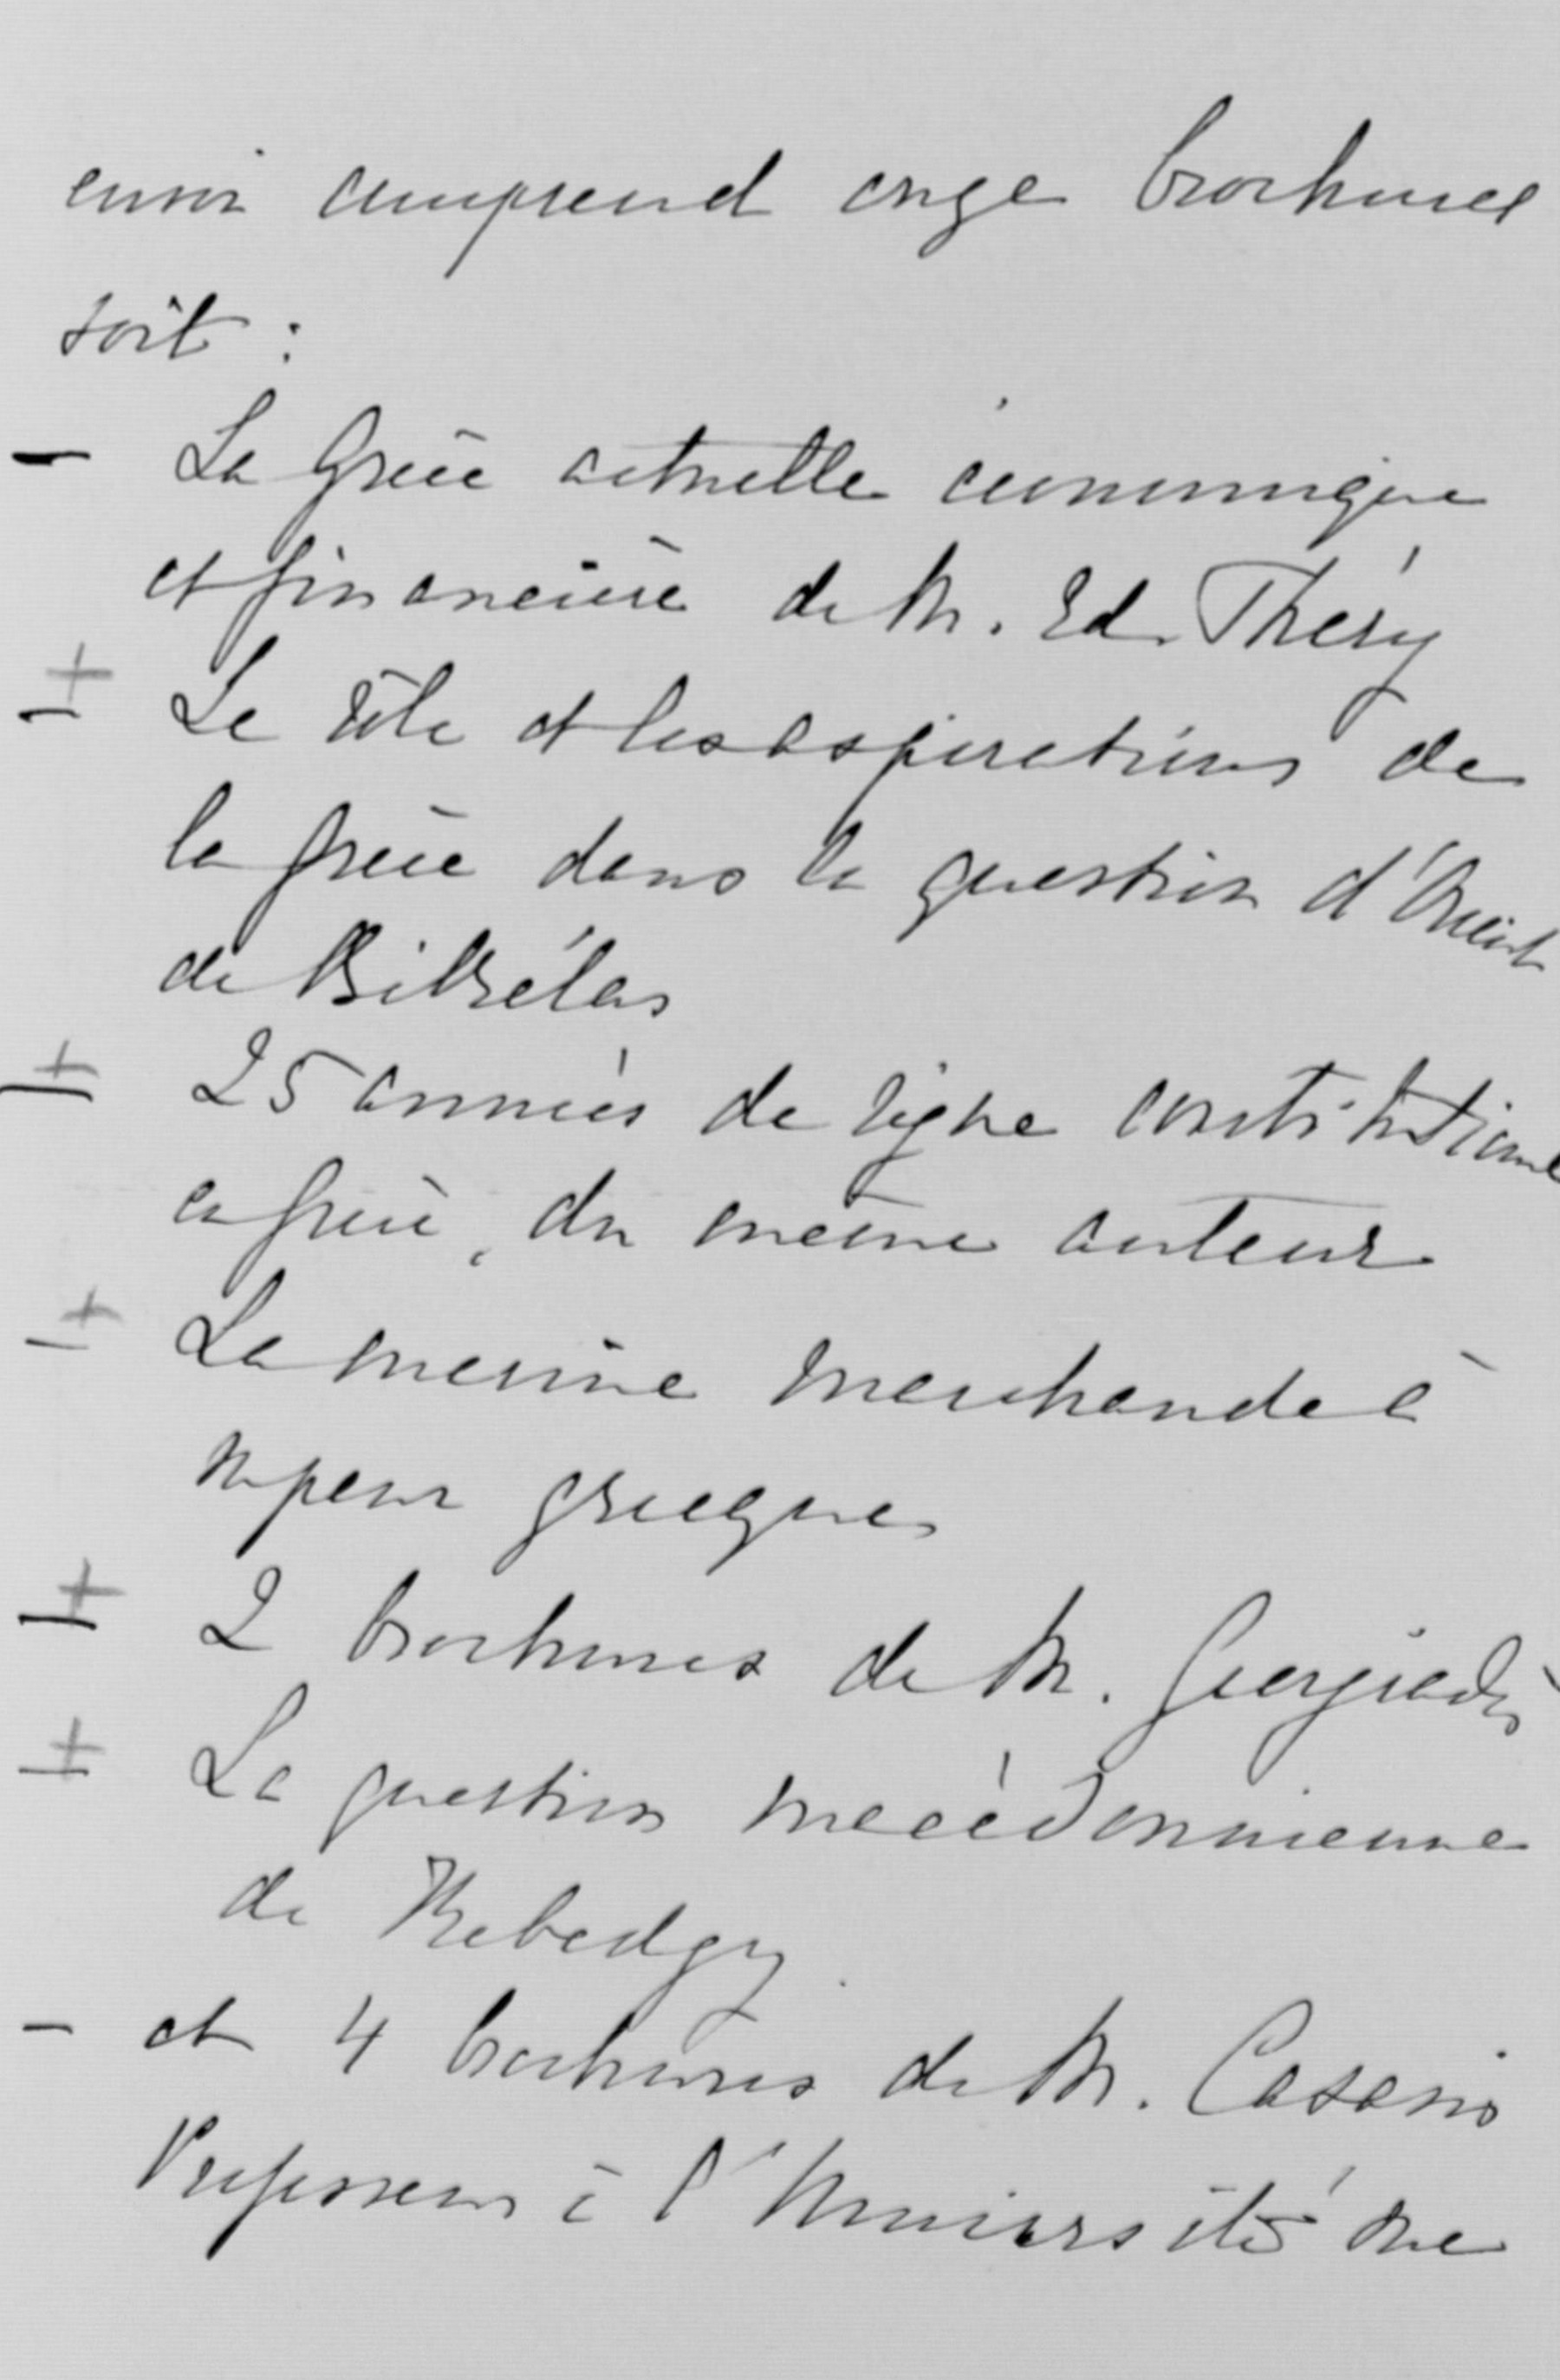 envoi comprend onze brochures
soit :
- La Grèce actuelle économique
et financière de M. Ed. Théry
± Le rôle et les aspirations de
la Grèce dans la question d'Orient
de Bikélas
± 25 années de règne constitutionnel
en Grèce, du même auteur
± La marine marchande à
vapeur grecque
± 2 brochures de M. Georgiadès
± La question macédonienne
de Kebedgy
- et 4 brochures de M. Casasis
Professeur à l'Université de